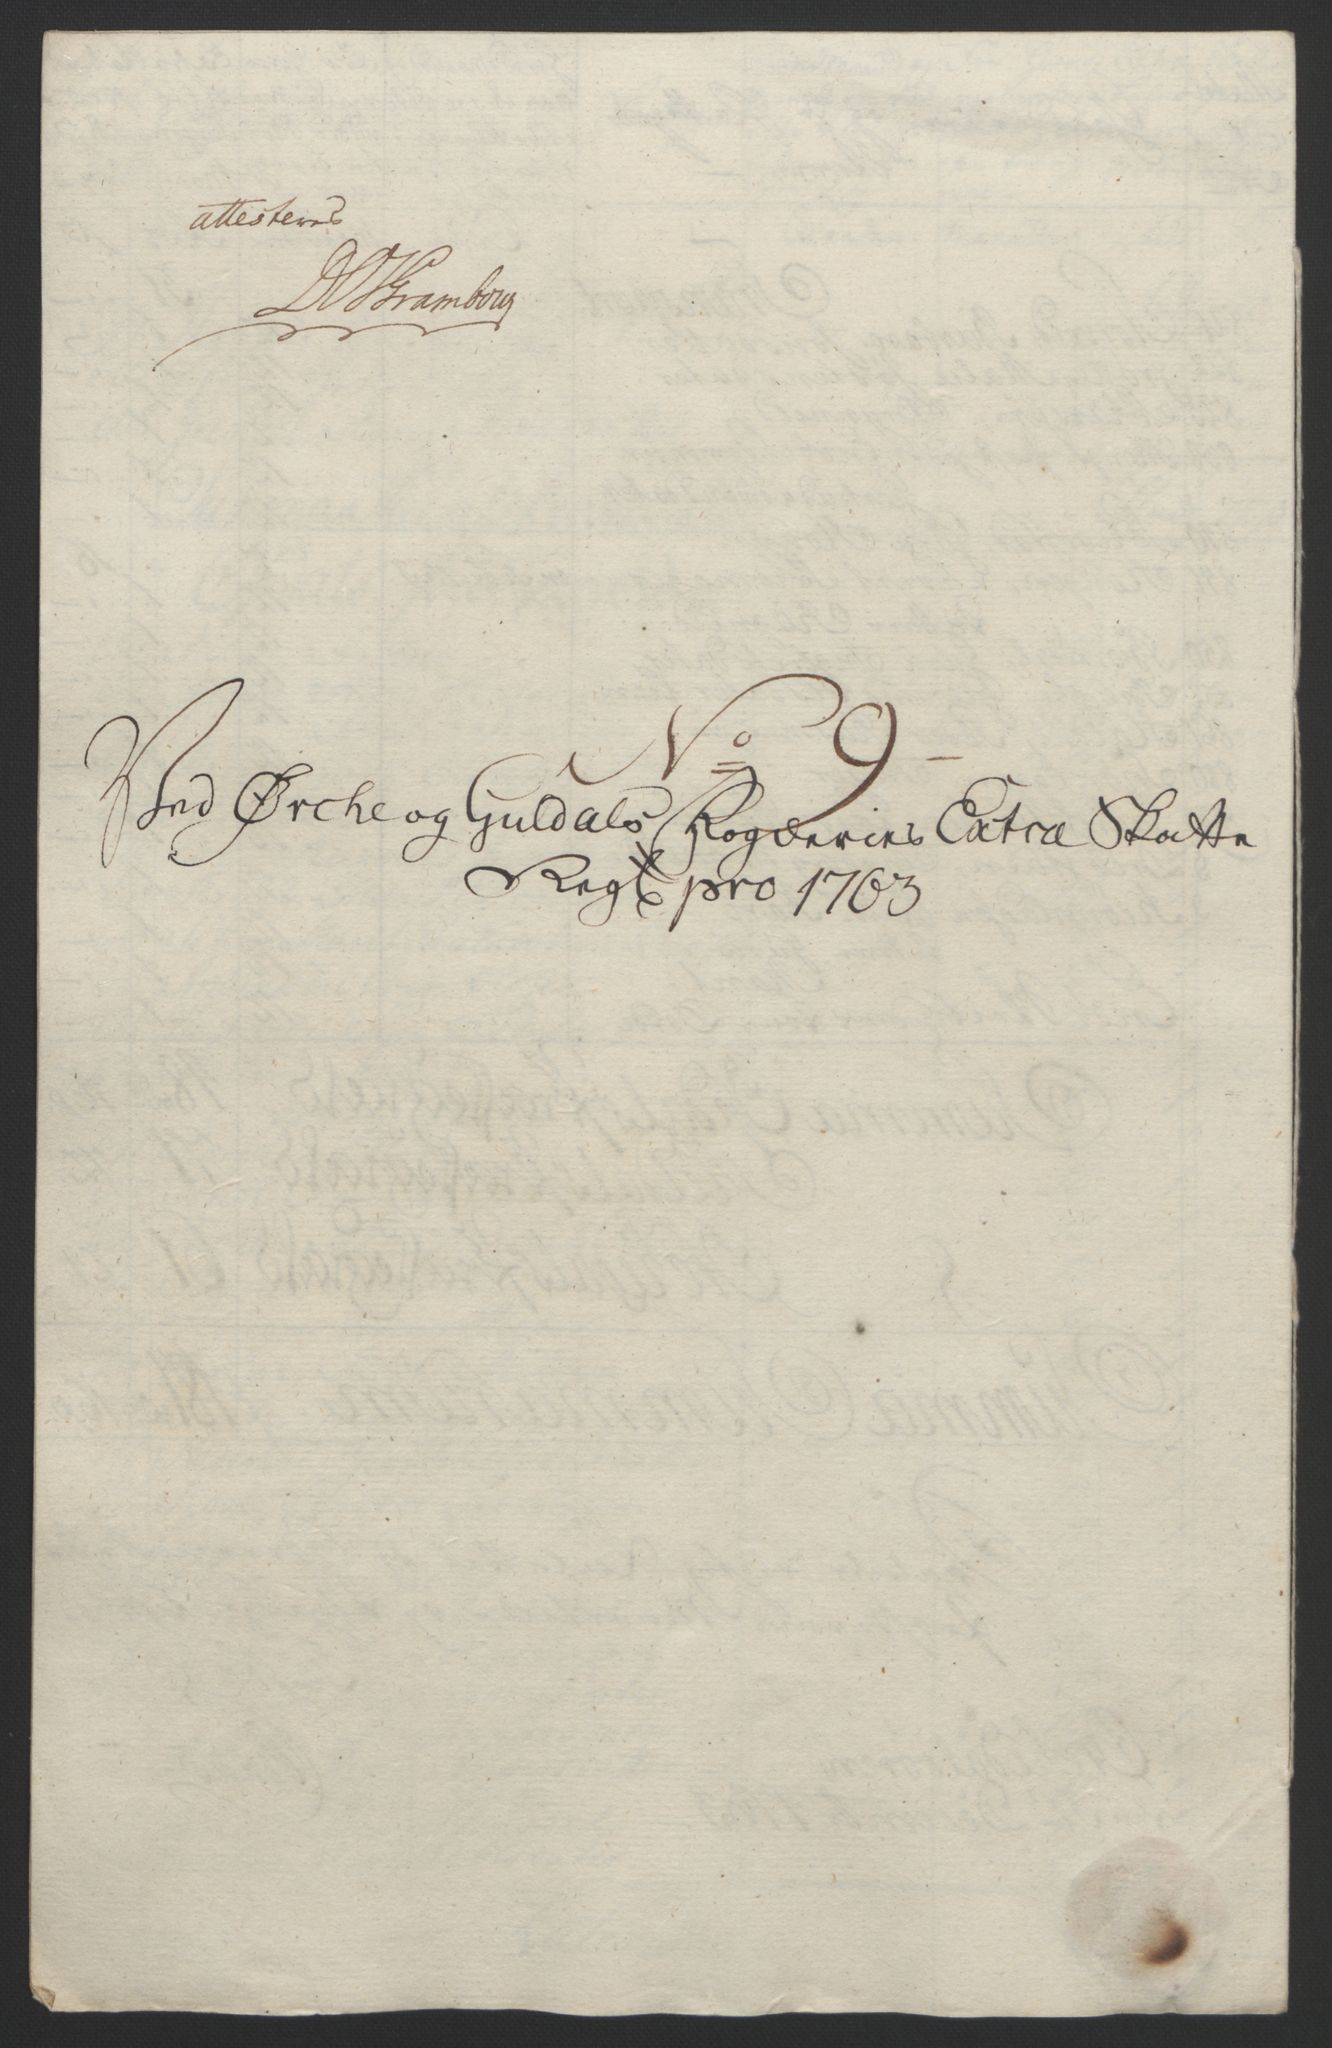 attesteres
DHKramborg
No 9
Ved Ørche og Guldals Fogderies Extra Skatte
Regsk pro 1763